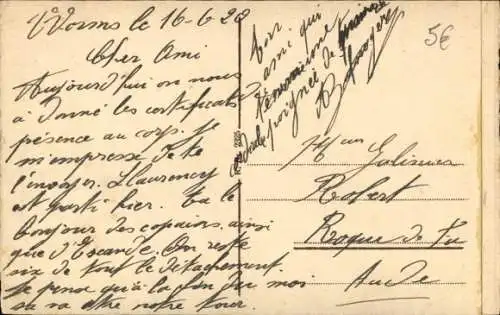 Worms le 16-6-20
Cher Ami
Aujourd'hui on nous
à donné les certificats
présence au corps. Je
m'empresse de te
l'envoyer. Llaurency
est parti hier. Tu le
bonjour des copains, ainsi
que d'Escande. On reste
six de tout le détachement.
Je pense qu'à la fin du moi
sa va etre notre tour.
Ton
ami qui
poignée de mains
5€
Robert
Roque de Fa
Aude